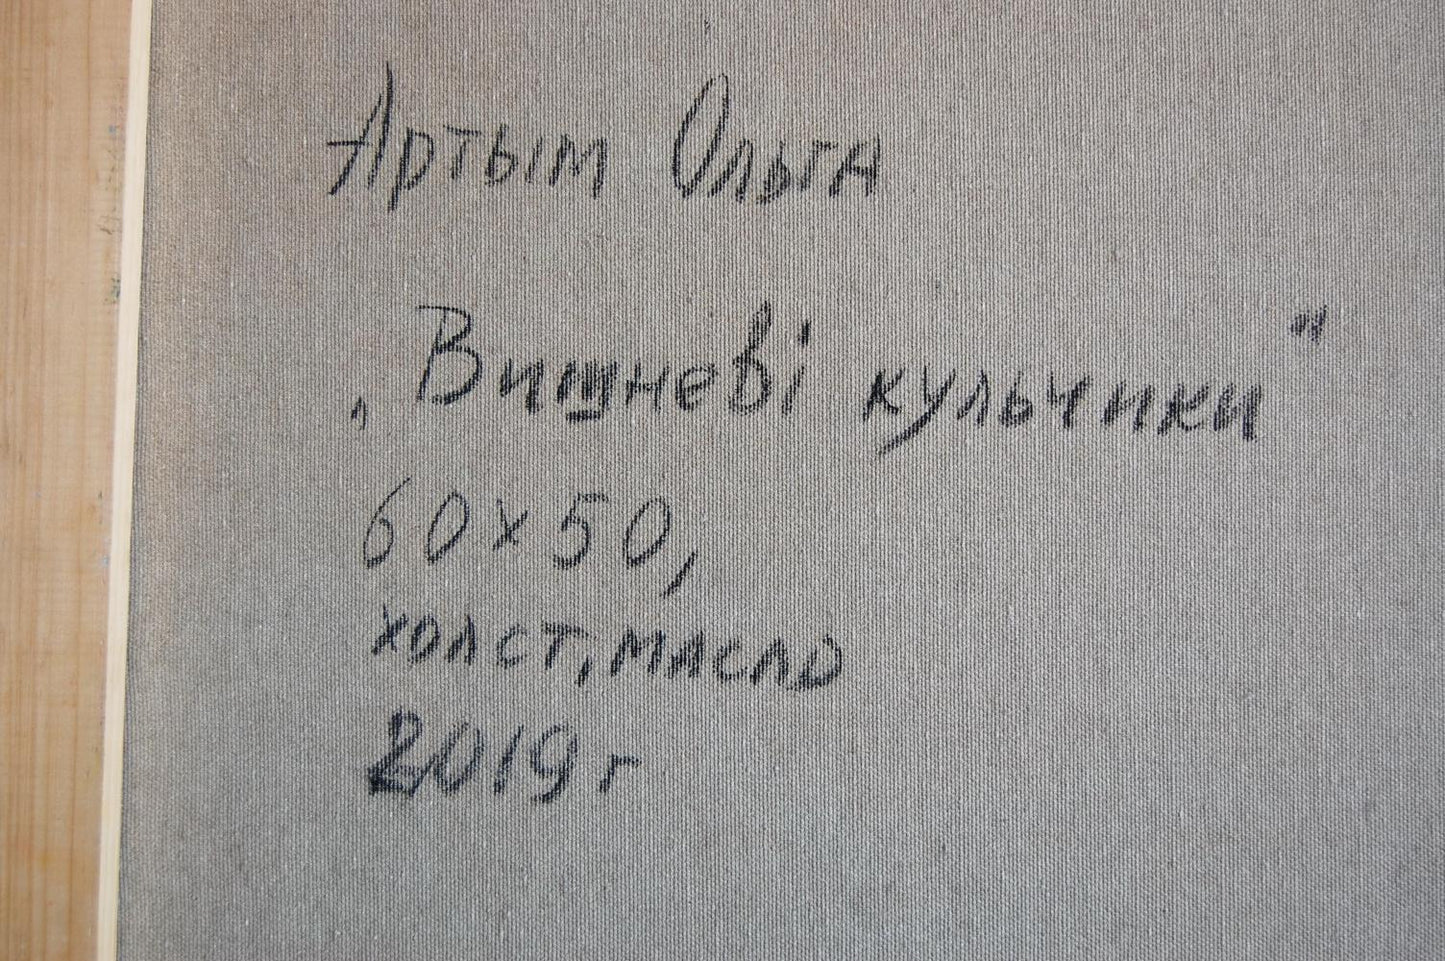 Артым Ольга
„Вишневі кульчики"
60х50,
холст, масло
2019 г